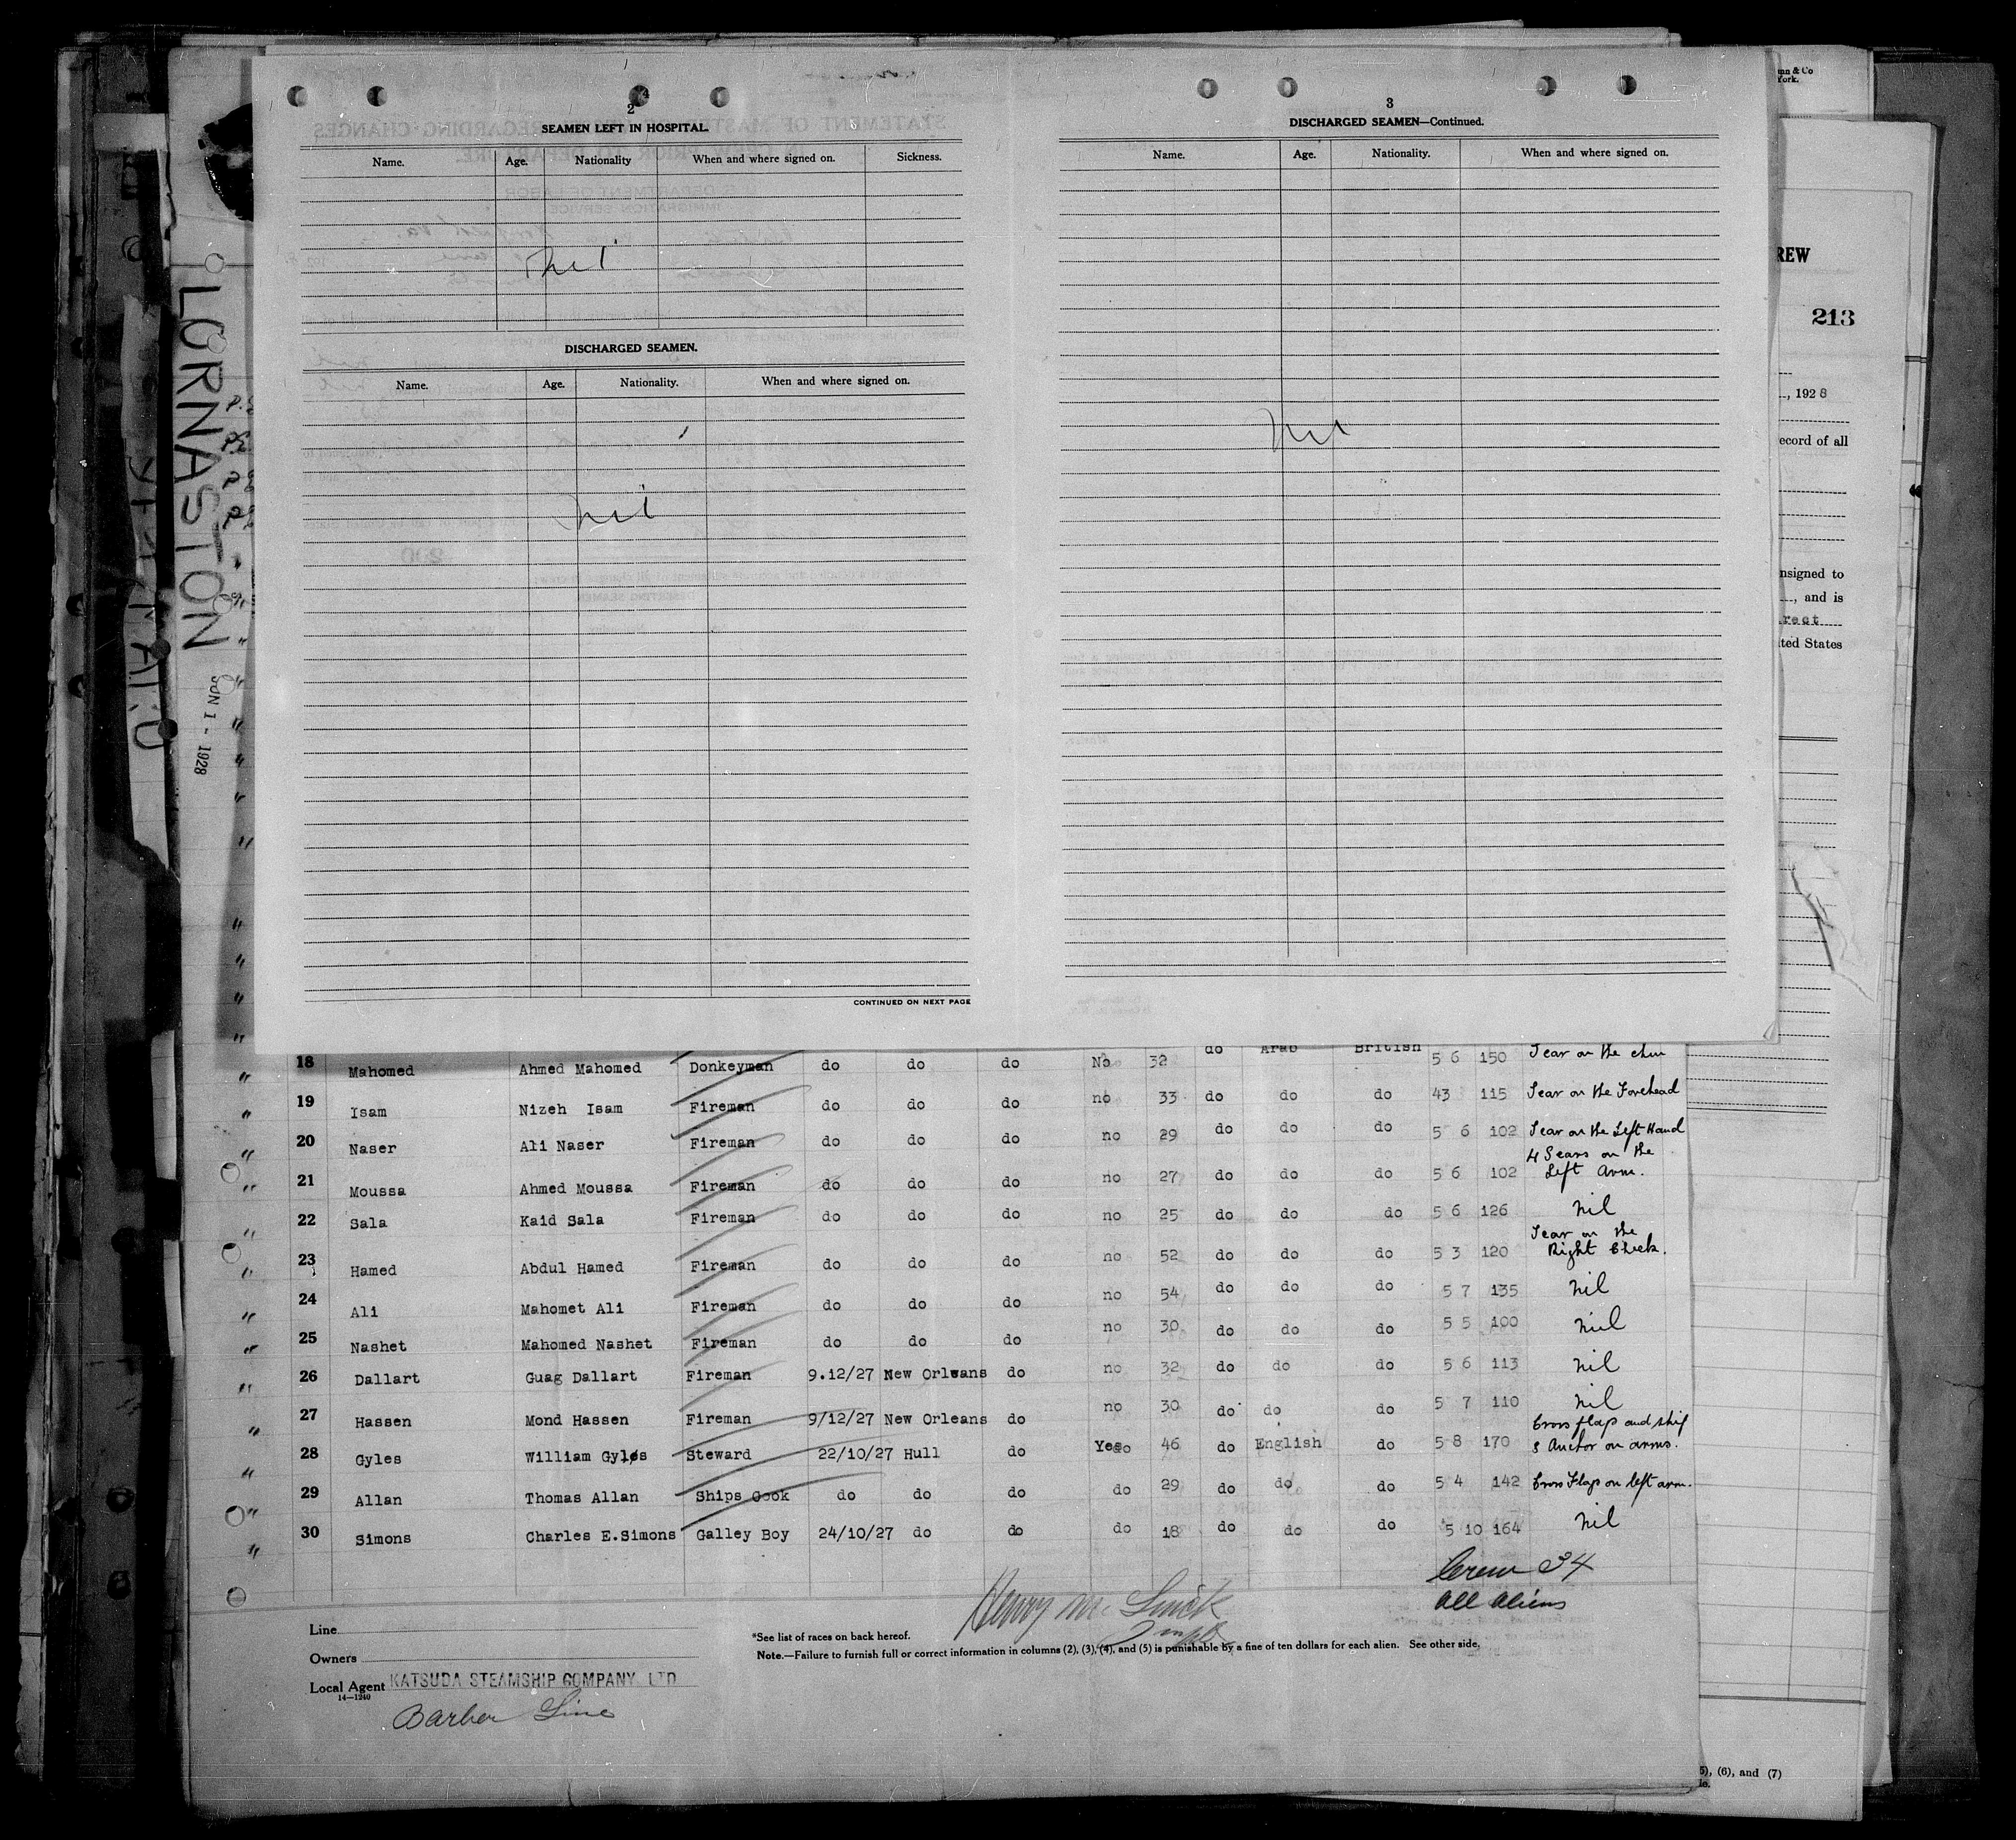 2
SEAMEN LEFT IN HOSPITAL.
Name. Age. Nationality When and where signed on. Sickness.
nil
DISCHARGED SEAMEN.
Name. Age. Nationality. When and where signed on.
nil
CONTINUED ON NEXT PAGE
3
DISCHARGED SEAMEN—Continued.
Name. Age. Nationality. When and where signed on.
nil
LORNASTON
JUN 1 - 1928
REW
213
, 1928
ecord of all
nsigned to
, and is
rect
ited States
18 Mahomed Ahmed Mahomed Donkeyman do do do No 32 do Arab British 5 6 150 Scar on the chin
19 Isam Nizeh Isam Fireman do do do no 33 do do do 43 115 Scar on the Forehead
20 Naser Ali Naser Fireman do do do no 29 do do do 5 6 102 Scar on the Left Hand
21 Moussa Ahmed Moussa Fireman do do do no 27 do do do 5 6 102 4 Scars on the Left Arm.
22 Sala Kaid Sala Fireman do do do no 25 do do do 5 6 126 nil
23 Hamed Abdul Hamed Fireman do do do no 52 do do do 5 3 120 Scar on the Right Cheek.
24 Ali Mahomet Ali Fireman do do do no 54 do do do 5 7 135 nil
25 Nashet Mahomed Nashet Fireman do do do no 30 do do do 5 5 100 nil
26 Dallart Guag Dallart Fireman 9.12/27 New Orleans do no 32 do do do 5 6 113 nil
27 Hassen Mond Hassen Fireman 9/12/27 New Orleans do no 30 do do do 5 7 110 nil
28 Gyles William Gyles Steward 22/10/27 Hull do Yes 46 do English do 5 8 170 Cross flags and ship & Anchor on arms.
29 Allan Thomas Allan Ships Cook do do do do 29 do do do 5 4 142 Cross Flags on left arm.
30 Simons Charles E.Simons Galley Boy 24/10/27 do do do 18 do do do 5 10 164 nil
Crew 34
All Aliens
Line
Owners
Local Agent KATSUDA STEAMSHIP COMPANY, LTD
14—1240
Barber Line
*See list of races on back hereof.
Note.—Failure to furnish full or correct information in columns (2), (3), (4), and (5) is punishable by a fine of ten dollars for each alien. See other side.
5), (6), and (7)